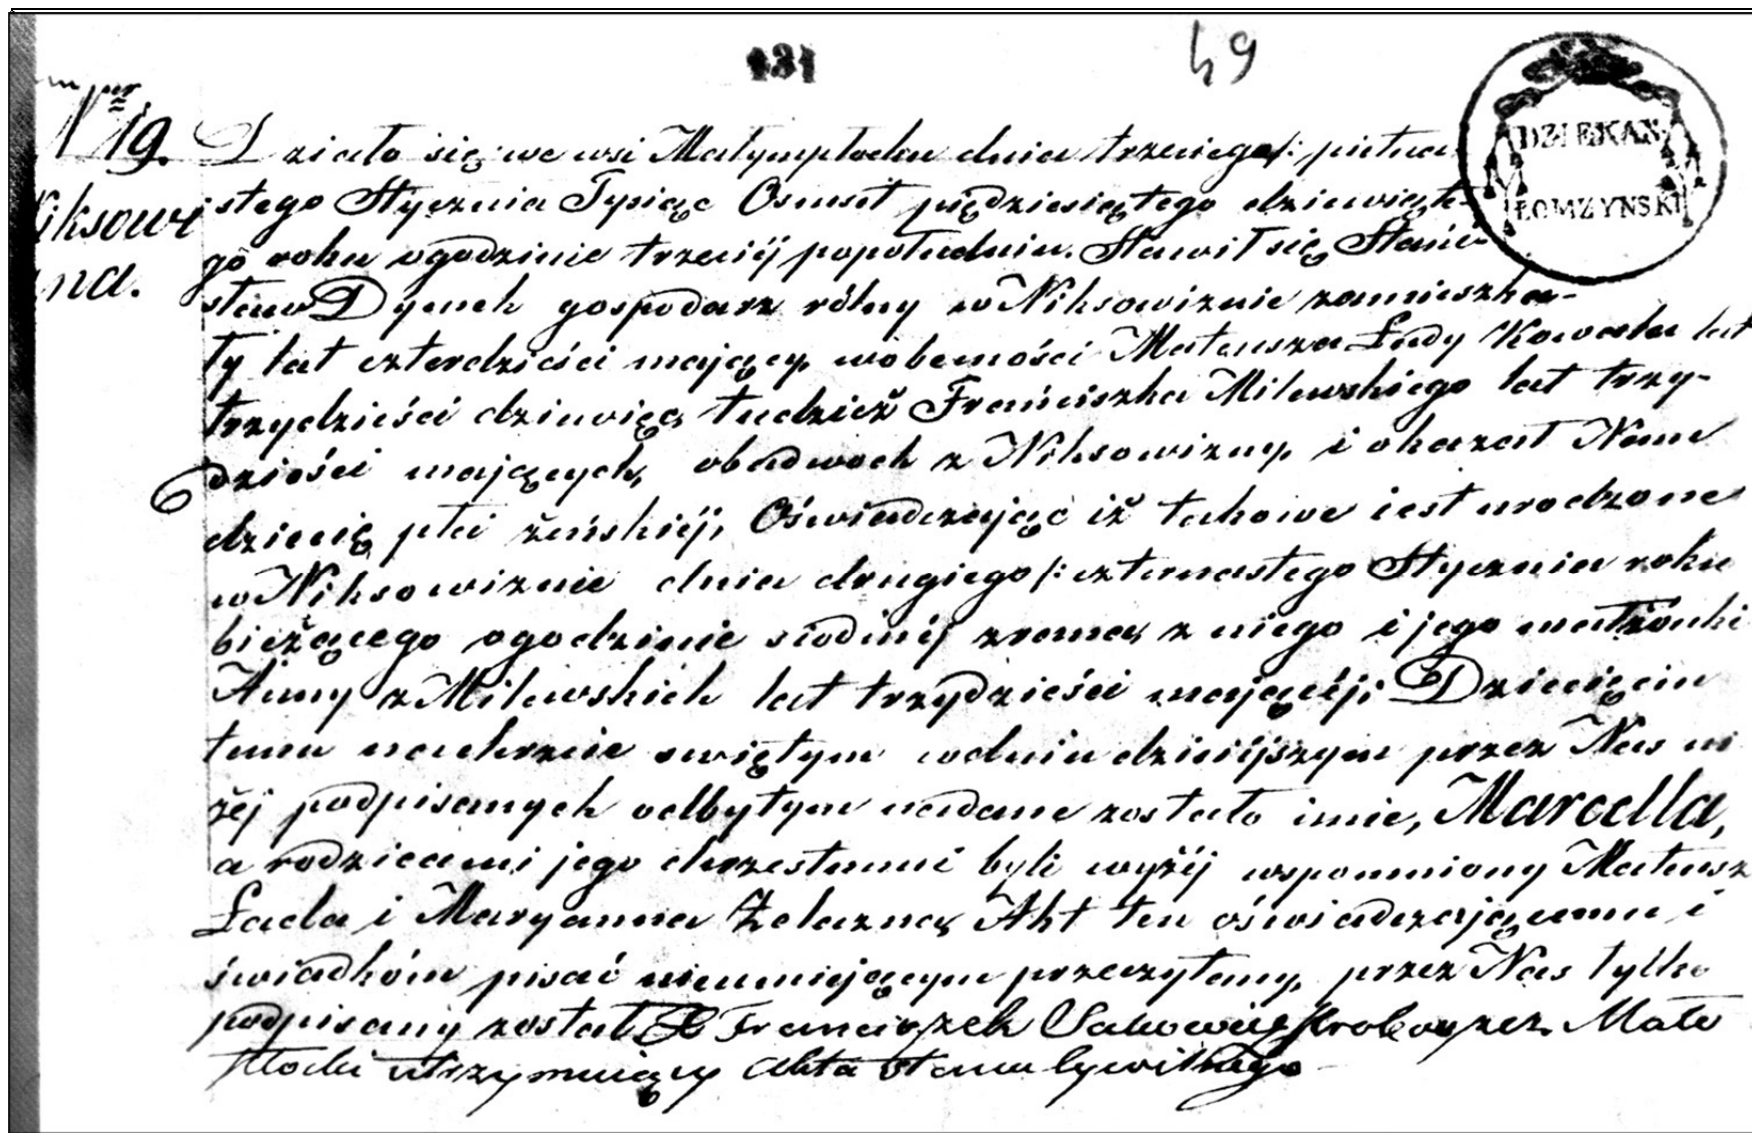 131
49
DZIEKAN
ŁOMZYNSKI
Nr 19.
iksowi
na.
Działo się we wsi Małympłocku dnia trzeciego/: piętna
stego Stycznia Tysiąc Osmset pięđziesiątego dziewiąte-
go roku ogodzinie trzeciej popołudniu. Stawił się Stani-
sław Dymek gospodarz rólny w Niksowiznie zamieszka-
ły lat czterdzieści mający, wobecności Mateusza Łady Kowala lat
trzydzieści dziewięc, tudzież Franciszka Milewskiego lat trzy-
dzieści mających, obudwoch z Niksowizny, i okazał Nam
dziecię płci żeńskiéj, Oświadczając iż takowe iest urodzone
w Niksowiznie dnia drugiego/: czternastego Stycznia roku
bieżącego ogodzinie siodméj zrana, z niego i jego małżonki
Anny z Milewskich lat trzydzieści mającéj, Dziecięciu
temu nachrzcie swiętym wdniu dzisiéjszym przez Nas ni
żéj podpisanych odbytym nadane zostało imie, Marcella,
a rodzicami jego chrzestnemi byli wyżéj wspomniony Mateusz
Łada i Maryanna Żelazna, Akt ten oświadczającemu i
świadkóm pisać nieumiejącym przeczytany, przez Nas tylko
podpisany został X Franciszek Prob Mało
Płocki utrzymuiący Akta Stanu Cywilnego